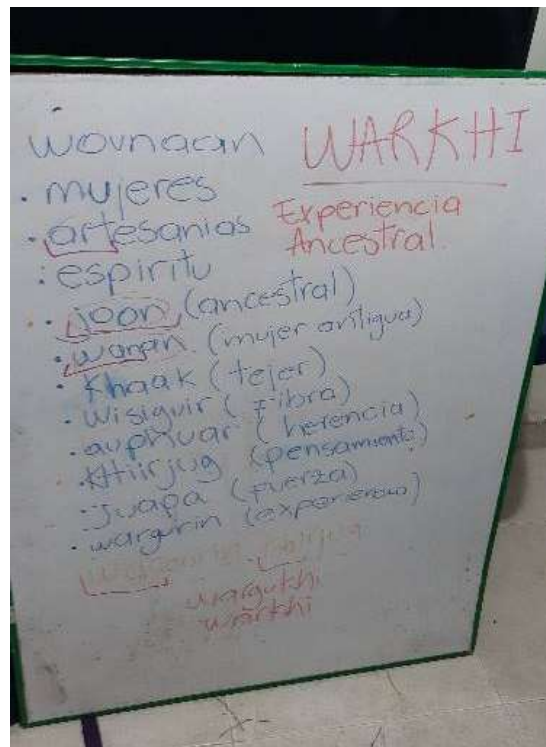 wounaan
WARKHI
Experiencia
Ancestral.
• mujeres
• artesanias
• espiritu
• joon (ancestral)
• (mujer antigua)
• Khaak (tejer)
• wisiguir (Fibra)
• auphuar (herencia)
• Khiirjug (pensamiento)
• Juapa (fuerza)
• wargurin
wargukhi
warkhi